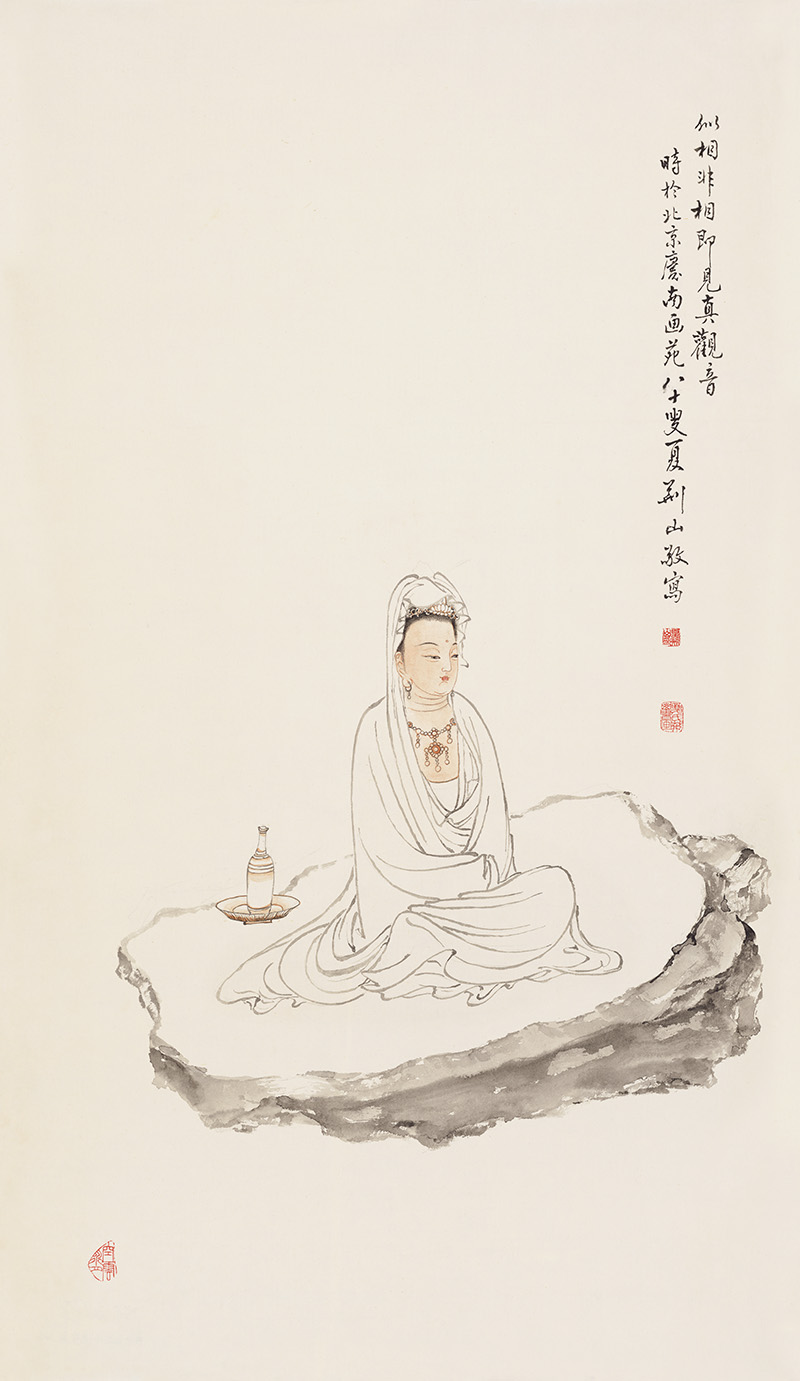 似相非相即見真觀音
時於北京慶南画苑八十叟夏荆山敬寫